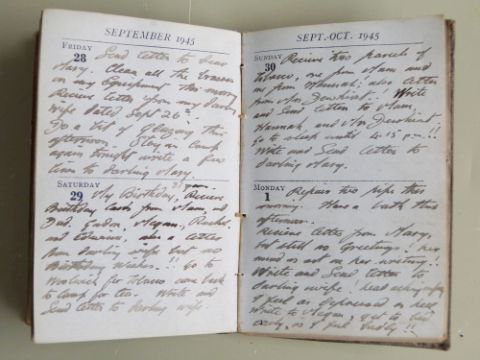 SEPTEMBER 1945
FRIDAY
28 Send letter to dear
Mary. Clean all the
on my Equipment this morn.
Receive letter from my darling
wife dated Sept 26th.
Do a bit of glazing this
afternoon. Stay in Camp
again tonight write a few
lines to darling Mary.
SATURDAY
29 My Birthday, Receive
Birthday Cards from Mam and
Dad.
and also a letter
from darling wife but no
Birthday Wishes. !! Go to
for Tobacco come back
to Camp for tea. Write and
Send letter to darling wife.
SEPT.-OCT. 1945
SUNDAY
30 Receive two parcels of
tobacco, one from Mam and
one from Hannah; also letter
from Mr. ! Write
and Send letters to Mam,
Hannah and Mr.
Go to sleep until 4.15 pm!!
Write and Send letter to
darling Mary.
MONDAY
1 Repair two pipes this
morning. Have a bath this
afternoon.
Receive letter from Mary,
but still no Greetings! her
mind is not on her writing!
Write and Send letter to
darling wife! head aching
I feel so depressed as well
Write to, get to bed
early, as I feel lousy!!